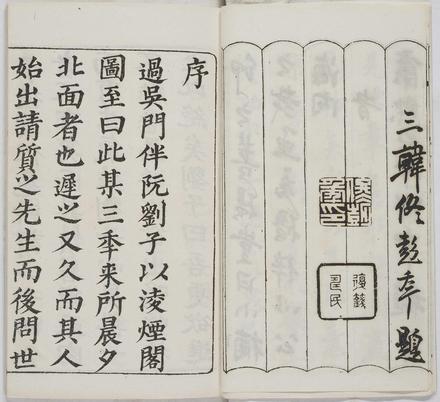 三韓佟彭年題
序
過吳門伴阮劉子以凌煙閣
圖至曰此某三秊来所晨夕
北面者也遲之又久而其人
始出請質之先生而後問世